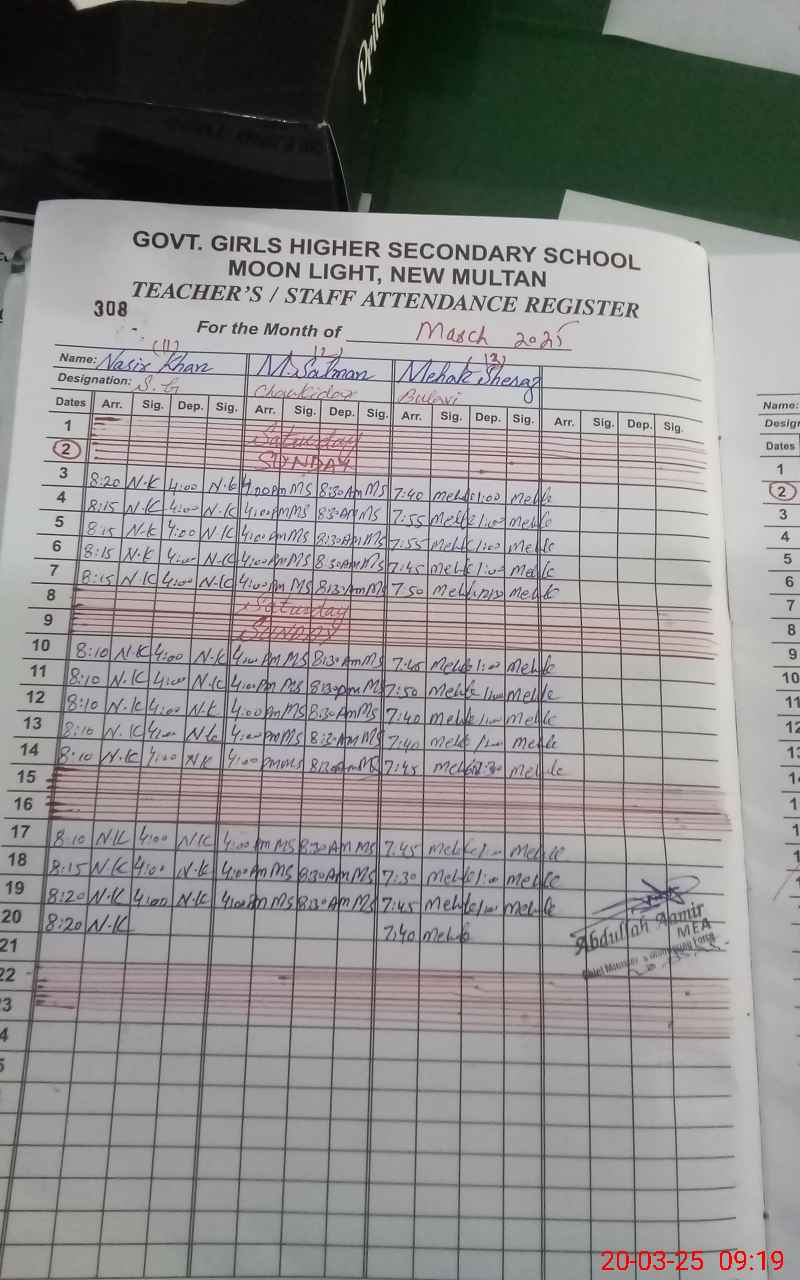 Prin
GOVT. GIRLS HIGHER SECONDARY SCHOOL
MOON LIGHT, NEW MULTAN
TEACHER'S / STAFF ATTENDANCE REGISTER
308
For the Month of March 2025
(11) (12) (13)
Name: Nasir Khan M. Salman Mehak Sheraz
Designation: S.G Chowkidar
Dates Arr. Sig. Dep. Sig. Arr. Sig. Dep. Sig. Arr. Sig. Dep. Sig. Arr. Sig. Dep. Sig.
1 Saturday
2 SUNDAY
3 8:20 N.K 4:00 N.K 4:00pm MS 8:30Am MS 7:40 Mehk 1:00 Mehk
4 8:15 N.K 4:00 N.K 4:00pm MS 8:30Am MS 7:55 Mehk 1:00 Mehk
5 8:15 N.K 4:00 N.K 4:00pm MS 8:30Am MS 7:55 Mehk 1:00 Mehk
6 8:15 N.K 4:00 N.K 4:00pm MS 8:30Am MS 7:45 Mehk 1:00 Mehk
7 8:15 N.K 4:00 N.K 4:00pm MS 8:30Am MS 7:50 Mehk Mehk
8 Saturday
9 SUNDAY
10 8:10 N.K 4:00 N.K 4:00pm MS 8:30Am MS 7:45 Mehk 1:00 Mehk
11 8:10 N.K 4:00 N.K 4:00pm MS 8:30pm MS 7:50 Mehk 1:00 Mehk
12 8:10 N.K 4:00 N.K 4:00pm MS 8:30Am MS 7:40 Mehk 1:00 Mehk
13 8:10 N.K 4:00 N.K 4:00pm MS 8:30Am MS 7:40 Mehk 1:00 Mehk
14 8:10 N.K 4:00 N.K 4:00pm MS 8:30Am MS 7:45 Mehk Mehk
15
16
17 8:10 N.K 4:00 N.K 4:00pm MS 8:30Am MS 7:45 Mehk 1:00 Mehk
18 8:15 N.K 4:00 N.K 4:00pm MS 8:30Am MS 7:30 Mehk 1:00 Mehk
19 8:20 N.K 4:00 N.K 4:00pm MS 8:30Am MS 7:45 Mehk 1:00 Mehk
20 8:20 N.K 7:40 Mehk
21
22
3
4
5
Abdullah Aamir
MEA
Name:
Design
Dates
1
2
3
4
5
6
7
8
9
10
11
12
20-03-25 09:19